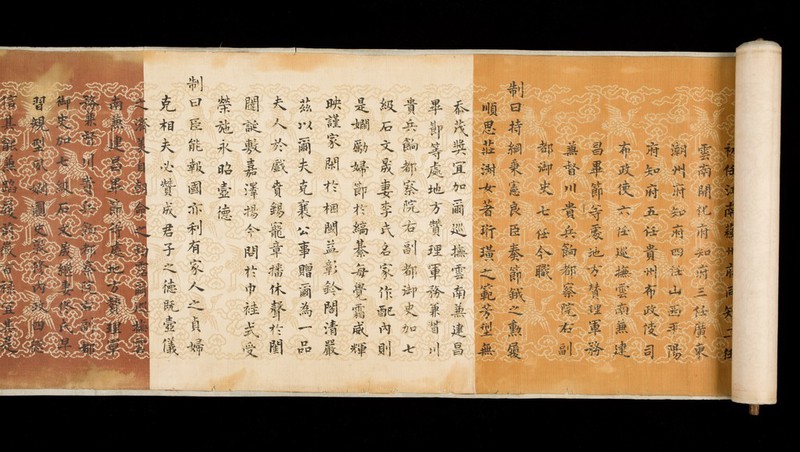 初任江南蘇州府同知二任
雲南開化府知府三任廣東
潮州府知府四任山西平陽
府知府五任貴州布政使司
布政使六任巡撫雲南兼建
昌畢節等處地方贊理軍務
兼督川貴兵餉都察院右副
都御史七任今職
制曰持綱秉憲良臣奏節鉞之勳履
順思莊淑女著珩璜之範芳型無
忝茂奬宜加爾巡撫雲南兼建昌
畢節等處地方贊理軍務兼督川
貴兵餉都察院右副都御史加七
級石文晟妻李氏名家作配內則
是嫺勵婦節於縞綦每覺霜威輝
映謹家閑於相閫益彰鈴閣清嚴
茲以爾夫克襄公事贈爾為一品
夫人於戲賁錫龍章播休聲於閨
閫誕敷嘉澤揚令聞於巾袿式受
榮施永昭壼德
制曰臣能報國亦利有家人之貞婦
克相夫必贊成君子之德既壼儀
之濟美
南兼建昌畢節等處地方贊理軍
務兼督川貴兵餉都察院右副都
御史加七級石文晟繼妻